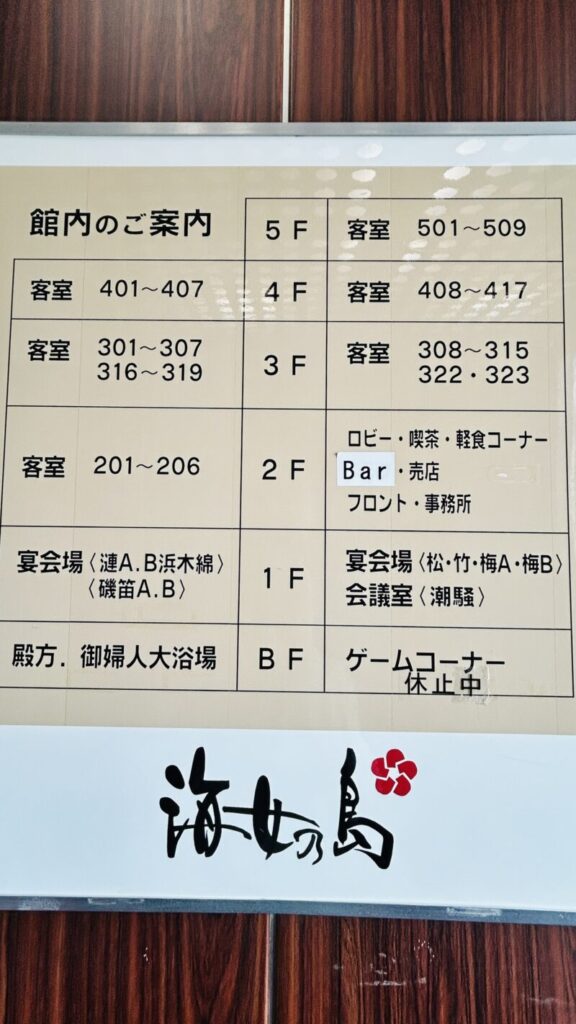 館内のご案内 5F 客室 501～509
客室 401～407 4F 客室 408～417
客室 301～307 3F 客室 308～315
316～319 322・323
ロビー・喫茶・軽食コーナー
客室 201～206 2F Bar・売店
フロント・事務所
宴会場〈漣A.B浜木綿〉 1F 宴会場〈松・竹・梅A・梅B〉
〈磯笛A.B〉 会議室〈潮騒〉
殿方．御婦人大浴場 BF ゲームコーナー
休止中
海女乃島